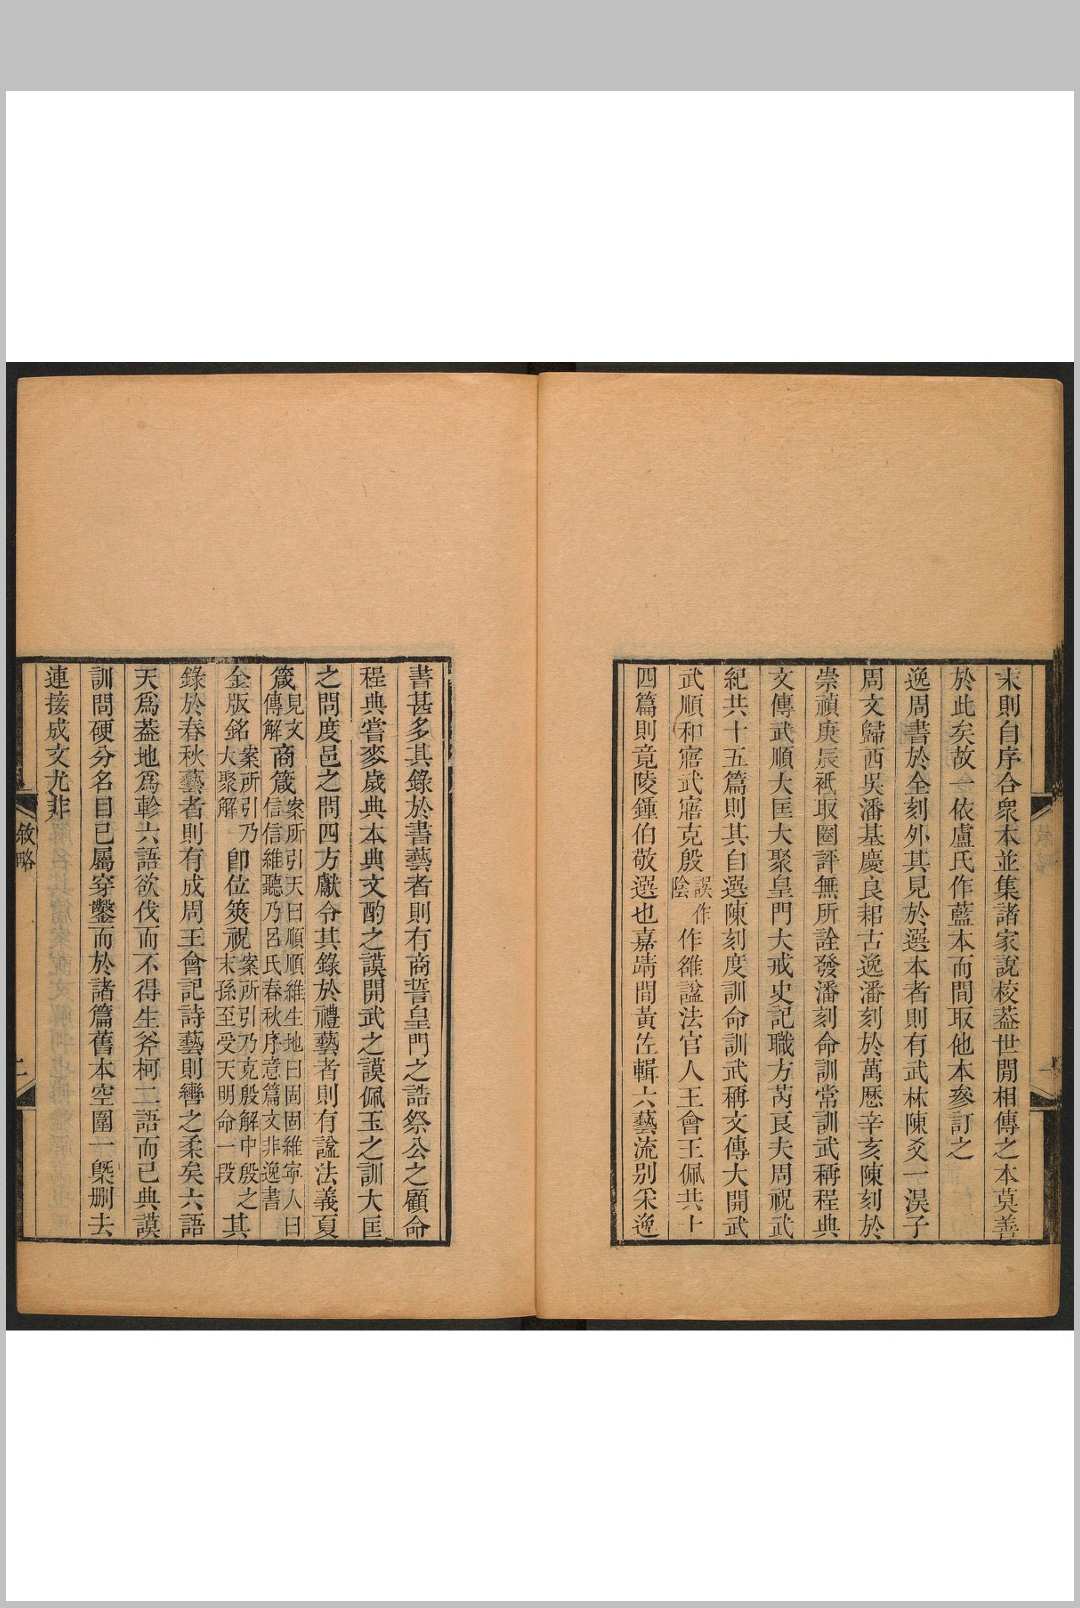 末則自序合衆本並集諸家說校葢世閒相傳之本莫善
於此矣故一依盧氏作藍本而間取他本參訂之
逸周書於全刻外其見於選本者則有武林陳爻一淏子
周文歸西吳潘基慶良耜古逸潘刻於萬厯辛亥陳刻於
崇禎庚辰祇取圈評無所詮發潘刻命訓常訓武稱程典
文傳武順大匡大聚皇門大戒史記職方芮良夫周祝武
紀共十五篇則其自選陳刻度訓命訓武稱文傳大開武
武順和寤武寤克殷誤作陰作雒諡法官人王會王佩共十
四篇則竟陵鍾伯敬選也嘉靖間黃佐輯六藝流別采逸
書甚多其錄於書藝者則有商誓皇門之誥祭公之顧命
程典嘗麥歲典本典文酌之謨開武之謨佩玉之訓大匡
之問度邑之問四方獻令其錄於禮藝者則有諡法義夏
箴見文傳解商箴案所引天曰順順維生地曰固固維寧人曰信信維聽乃呂氏春秋序意篇文非逸書
金版銘案所引乃大聚解卽位筴祝案所引乃克殷解中殷之末孫至受天明命一段其
錄於春秋藝者則有成周王會記詩藝則轡之柔矣六語
天爲葢地爲軫六語欲伐而不得生斧柯二語而已典謨
訓問硬分名目已屬穿鑿而於諸篇舊本空圍一槩刪去
連接成文尤非
敘略
二